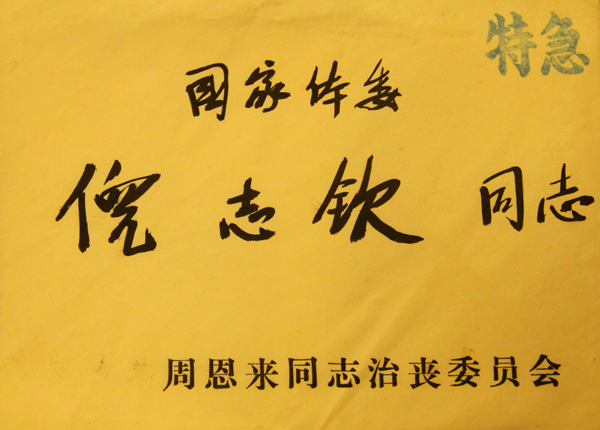 特急
国家体委
倪志钦 同志
周恩来同志治丧委员会